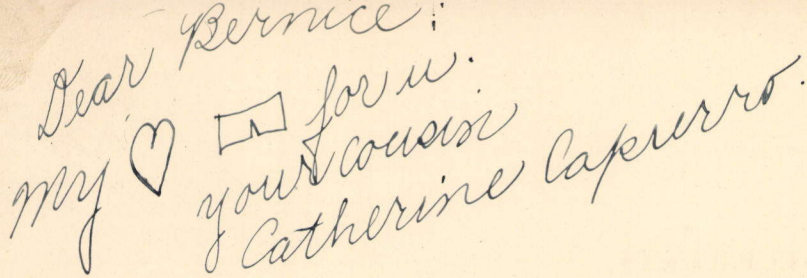 Dear Bernice:
My ♡ for u.
your cousin
Catherine Capurro.